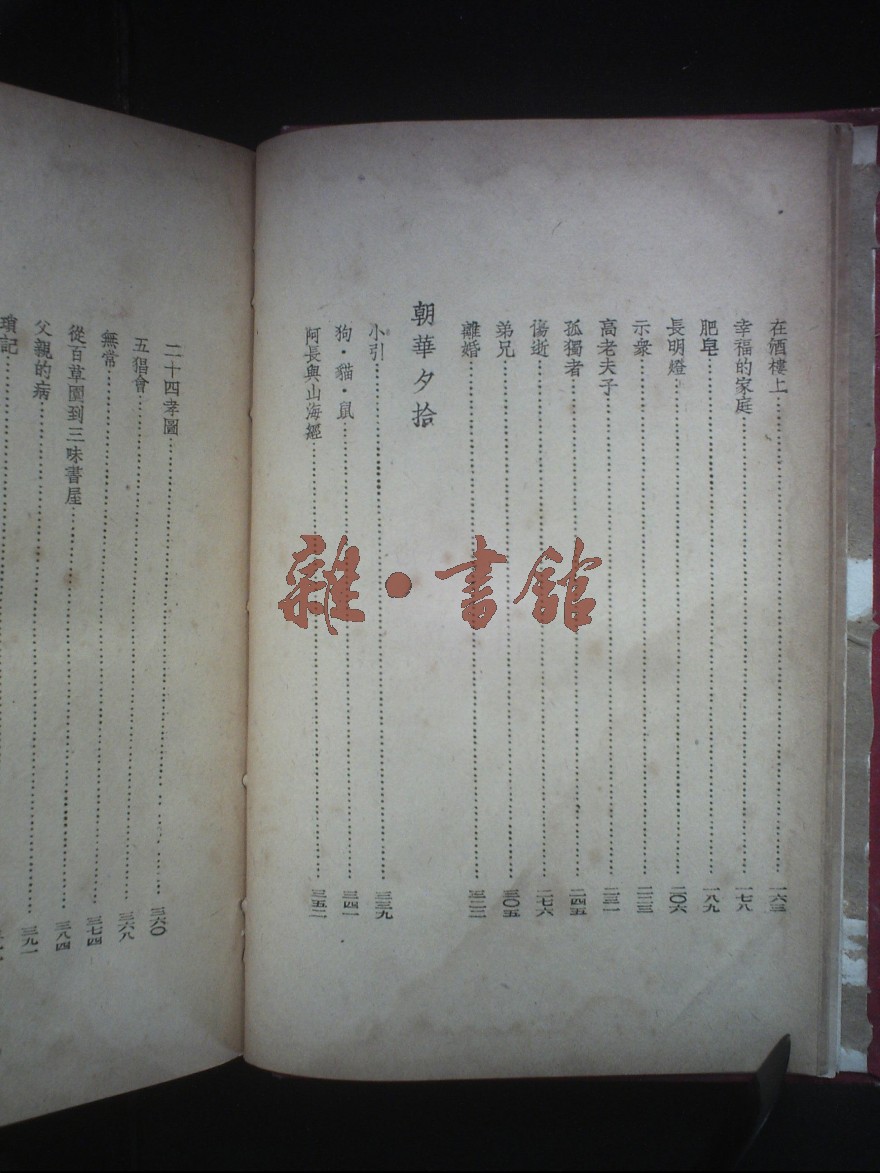 在酒樓上……一六三
幸福的家庭……一七八
肥皂……一八九
長明燈……二〇六
示衆……二二三
高老夫子……二三一
孤獨者……二四五
傷逝……二七六
弟兄……三〇五
離婚……三二二
朝華夕拾
小引……三三九
狗·貓·鼠……三四一
阿長與山海經……三五二
二十四孝圖……三六〇
五猖會……三六八
無常……三七四
從百草園到三味書屋……三八四
父親的病……三九一
瑣記……
雜·書館